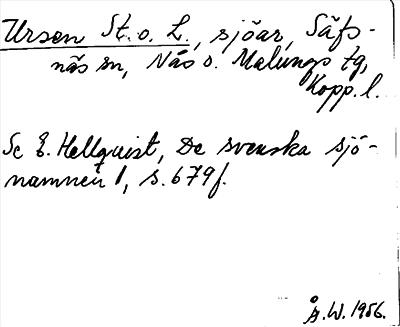 Ursen St. o. L., sjöar, Säfs-
näs sn, Nås o. Malungs tg,
Kopp. l.
Se E. Hellquist, De svenska sjö-
namnen 1, s. 679f.
Å. W. 1956.